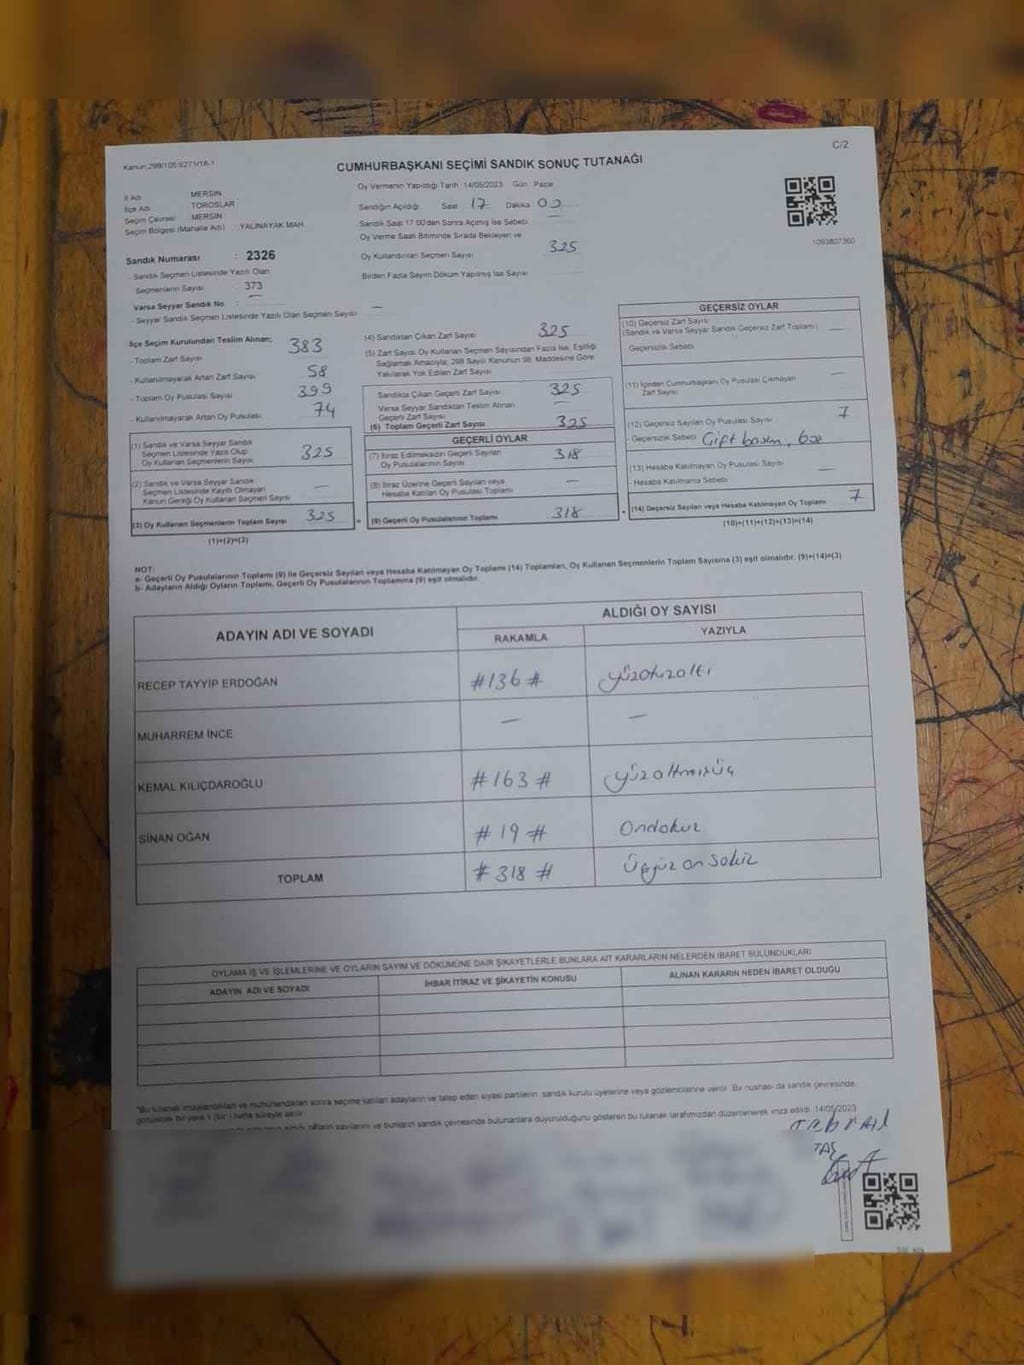 Kanun:298/105:6271/18-1
C/2
CUMHURBAŞKANI SEÇİMİ SANDIK SONUÇ TUTANAĞI
İl Adı : MERSİN
İlçe Adı : TOROSLAR
Seçim Çevresi : MERSİN
Seçim Bölgesi (Mahalle Adı) : YALINAYAK MAH.
Sandık Numarası : 2326
- Sandık Seçmen Listesinde Yazılı Olan
Seçmenlerin Sayısı : 373
Varsa Seyyar Sandık No : —
- Seyyar Sandık Seçmen Listesinde Yazılı Olan Seçmen Sayısı : —
Oy Vermenin Yapıldığı Tarih :14/05/2023 Gün : Pazar
Sandığın Açıldığı Saat 17 Dakika 00
Sandık Saat 17:00'den Sonra Açılmış İse Sebebi : —
Oy Verme Saati Bitiminde Sırada Bekleyen ve
Oy Kullandırılan Seçmen Sayısı 325
Birden Fazla Sayım Döküm Yapılmış İse Sayısı
1093807360
İlçe Seçim Kurulundan Teslim Alınan;
- Toplam Zarf Sayısı 383
- Kullanılmayarak Artan Zarf Sayısı 58
- Toplam Oy Pusulası Sayısı 399
- Kullanılmayarak Artan Oy Pusulası 74
(1) Sandık ve Varsa Seyyar Sandık
Seçmen Listesinde Yazılı Olup
Oy Kullanan Seçmenlerin Sayısı 325
(2) Sandık ve Varsa Seyyar Sandık
Seçmen Listesinde Kayıtlı Olmayan
Kanun Gereği Oy Kullanan Seçmen Sayısı —
(3) Oy Kullanan Seçmenlerin Toplam Sayısı 325
(1)+(2)=(3)
(4) Sandıktan Çıkan Zarf Sayısı 325
(5) Zarf Sayısı Oy Kullanan Seçmen Sayısından Fazla İse, Eşitliği
Sağlamak Amacıyla; 298 Sayılı Kanunun 98. Maddesine Göre
Yakılarak Yok Edilen Zarf Sayısı
Sandıkta Çıkan Geçerli Zarf Sayısı 325
Varsa Seyyar Sandıktan Teslim Alınan
Geçerli Zarf Sayısı —
(6) Toplam Geçerli Zarf Sayısı 325
GEÇERLİ OYLAR
(7) İtiraz Edilmeksizin Geçerli Sayılan
Oy Pusulalarının Sayısı 318
(8) İtiraz Üzerine Geçerli Sayılan veya
Hesaba Katılan Oy Pusulası Toplamı —
(9) Geçerli Oy Pusulalarının Toplamı 318
GEÇERSİZ OYLAR
(10) Geçersiz Zarf Sayısı
(Sandık ve Varsa Seyyar Sandık Geçersiz Zarf Toplamı) —
- Geçersizlik Sebebi
(11) İçinden Cumhurbaşkanı Oy Pusulası Çıkmayan
Zarf Sayısı —
(12) Geçersiz Sayılan Oy Pusulası Sayısı 7
- Geçersizlik Sebebi Çift basım, boş
(13) Hesaba Katılmayan Oy Pusulası Sayısı —
- Hesaba Katılmama Sebebi
(14) Geçersiz Sayılan veya Hesaba Katılmayan Oy Toplamı 7
(10)+(11)+(12)+(13)=(14)
NOT:
a- Geçerli Oy Pusulalarının Toplamı (9) ile Geçersiz Sayılan veya Hesaba Katılmayan Oy Toplamı (14) Toplamları, Oy Kullanan Seçmenlerin Toplam Sayısına (3) eşit olmalıdır. (9)+(14)=(3)
b- Adayların Aldığı Oyların Toplamı, Geçerli Oy Pusulalarının Toplamına (9) eşit olmalıdır.
ADAYIN ADI VE SOYADI
ALDIĞI OY SAYISI
RAKAMLA YAZIYLA
RECEP TAYYİP ERDOĞAN #136# yüzotuzaltı
MUHARREM İNCE — —
KEMAL KILIÇDAROĞLU #163# yüzaltmışüç
SİNAN OĞAN #19# Ondokuz
TOPLAM #318# Üçyüz on sekiz
OYLAMA İŞ VE İŞLEMLERİNE VE OYLARIN SAYIM VE DÖKÜMÜNE DAİR ŞİKAYETLERLE BUNLARA AİT KARARLARIN NELERDEN İBARET BULUNDUKLARI
ADAYIN ADI VE SOYADI İHBAR İTİRAZ VE ŞİKAYETİN KONUSU ALINAN KARARIN NEDEN İBARET OLDUĞU
"Bu tutanak imzalandıktan ve mühürlendikten sonra seçime katılan adayların ve talep eden siyasi partilerin sandık kurulu üyelerine veya gözlemcilerine verilir. Bir nüshası da sandık çevresinde,
görülebilir bir yere 1 (bir) hafta süreyle asılır.
bunların sandık çevresinde bulunanlara duyurulduğunu gösteren bu tutanak tarafımızdan düzenlenerek imza edildi. 14/05/2023
TAŞ